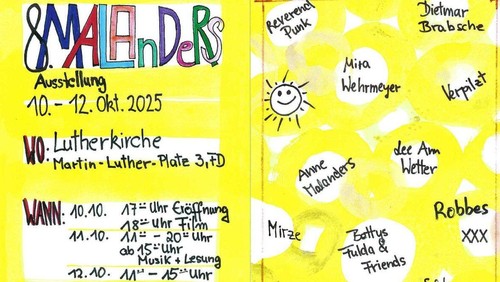 8. MALANDERS
Ausstellung
10. - 12. Okt. 2025
WO: Lutherkirche
Martin-Luther-Platz 3, FD
WANN: 10.10. 17 Uhr Eröffnung
18 Uhr Film
11.10. 11 - 20 Uhr
ab 15 Uhr
Musik + Lesung
12.10. 11 - 15 Uhr
Reverend
Punk
Dietmar
Brabsche
Mira
Wehrmeyer
Verpilzt
Anne
Malanders
Lee Ann
Wetter
Mirze
Battys
Fulda &
Friends
Robbes
XXX